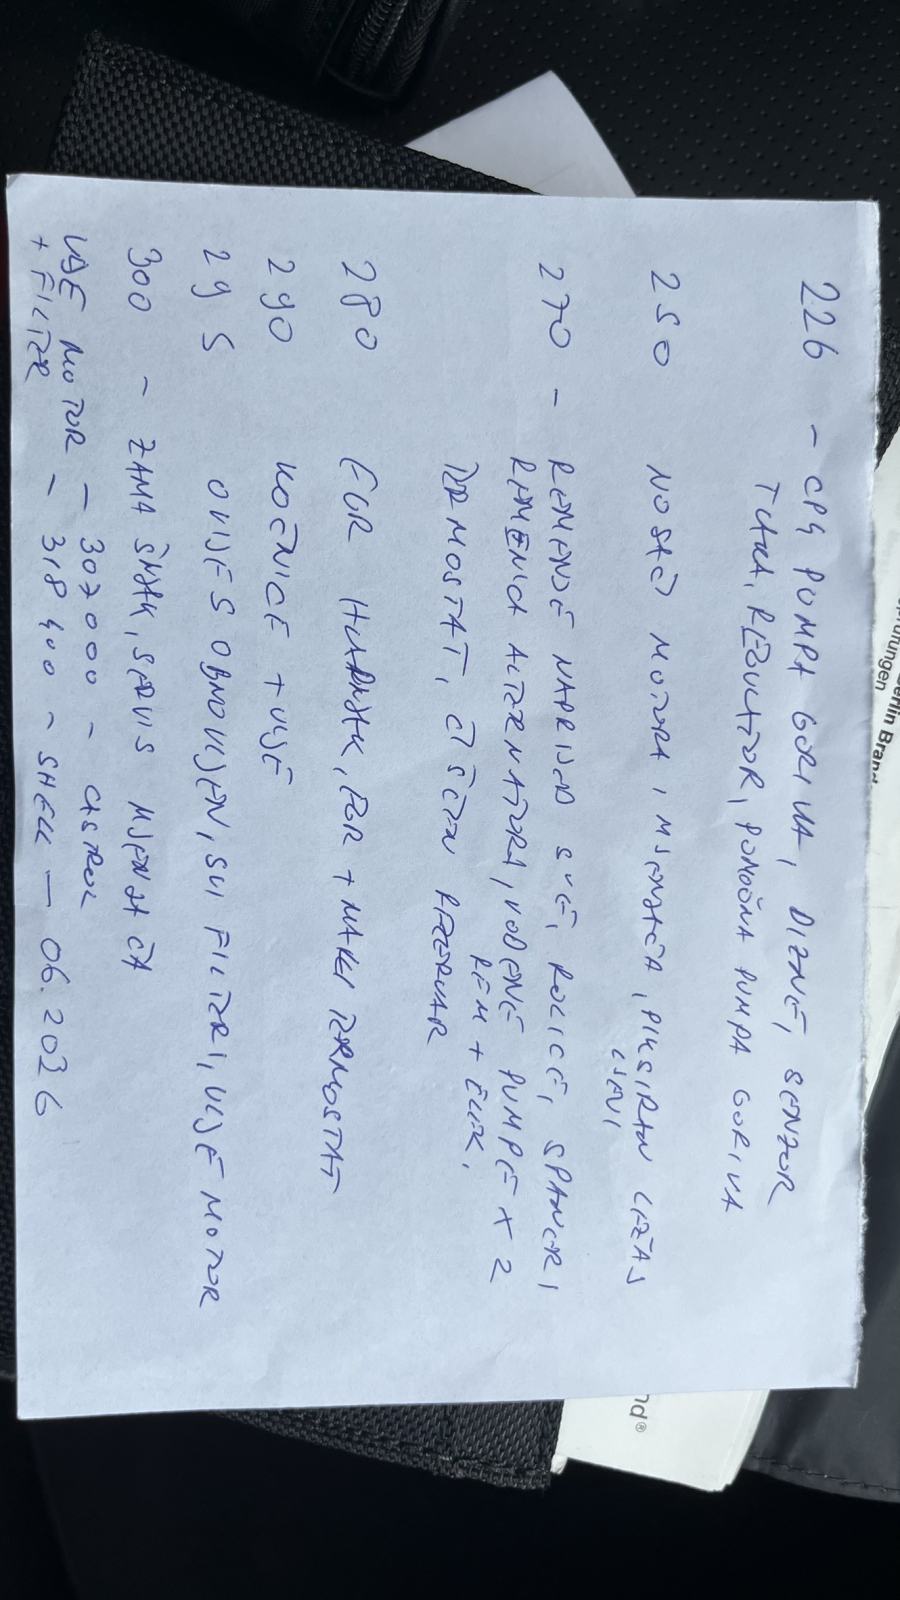 226 - CP4 PUMPA GORIVA, DIZNE, SENZOR
TLAKA, REGULATOR, POMOĆNA PUMPA GORIVA
250 NOSAČ MOTORA, MJENJAČA, FIKSIRAN LEŽAJ
LJEVI
270 - REMENJE NAPRIJED SVE, ROLICE, SPANERI
REMENICA ALTERNATORA, VODENE PUMPE X 2
REM + ELEK.
TERMOSTAT, ČIŠĆEN REZERVAR
280 EGR HLADNJAK, EGR + MALI TERMOSTAT
290 KOČNICE + ULJE
295 OVJES OBNOVLJEN, SVI FILTERI, ULJE MOTOR
300 - ZAMAŠNJAK, SERVIS MJENJAČA
ULJE MOTOR - 307000 - CASTROL
+ FILTER - 318 400 - SHELL - 06.2026
Berlin Brand
rüfungen
nd®